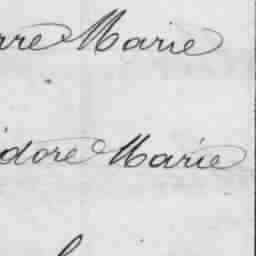 rre Marie
idore Marie